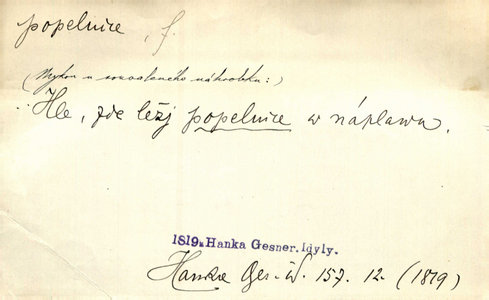 popelnice, f.
(Mykon u rozwaleného náhrobku:)
Hle, zde ležj popelnice w náplawu.
1819. Hanka Gesner. Idyly.
Hanka Ges. W. 157. 12. (1819)